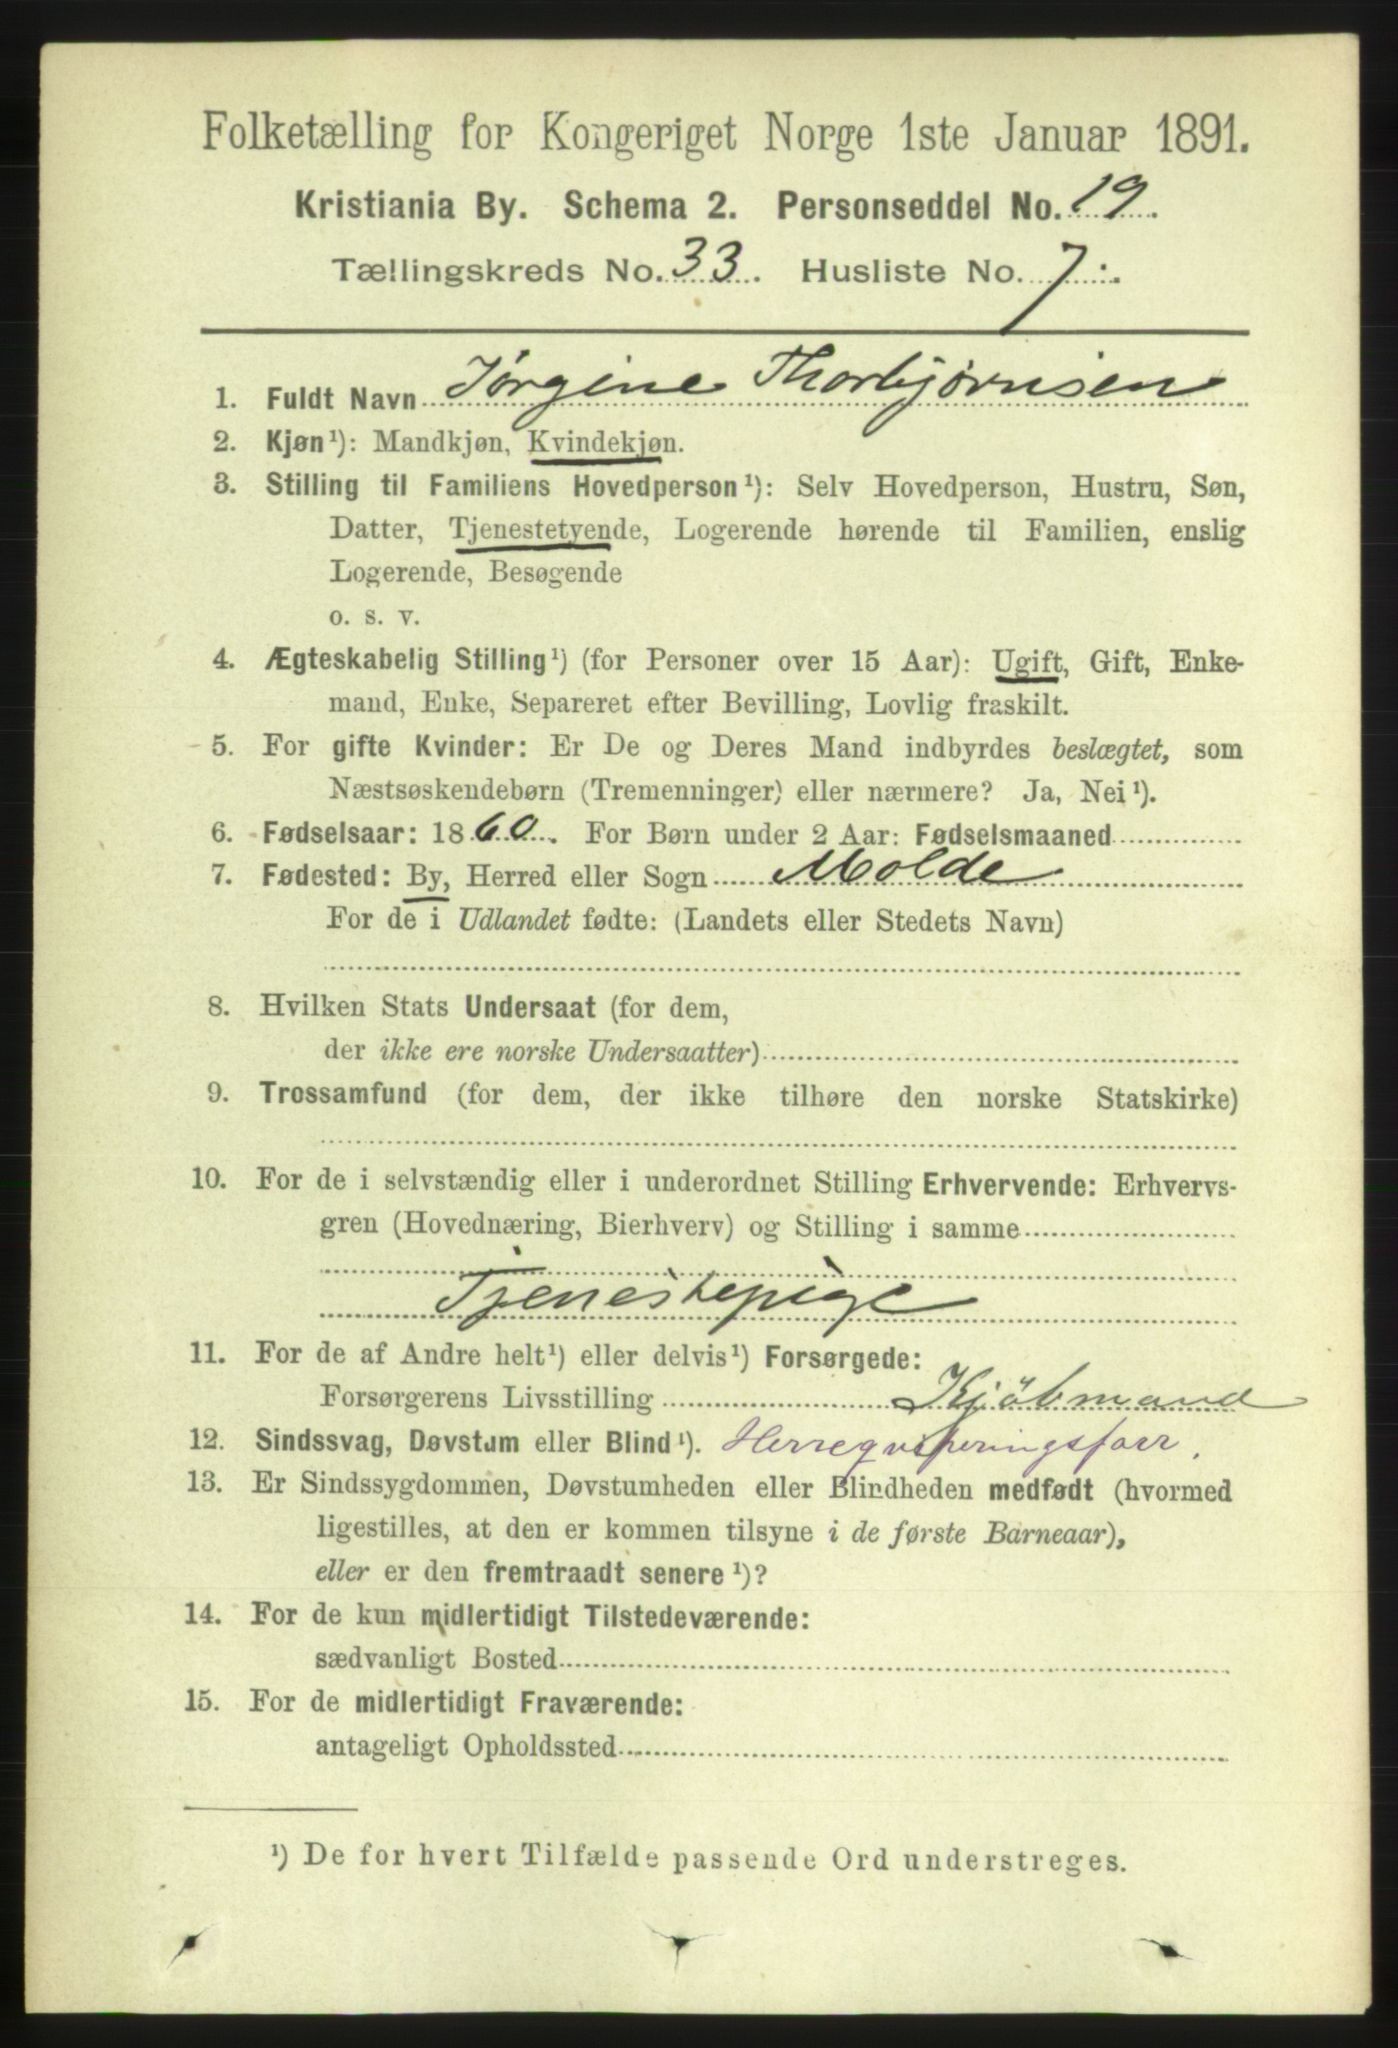 Folketælling for Kongeriget Norge 1ste Januar 1891.
Kristiania By. Schema 2. Personseddel No. 19.
Tællingskreds No. 33. Husliste No. 7.
1. Fuldt Navn Jørgine Thorbjørnsen
2. Kjøn¹): Mandkjøn, Kvindekjøn.
3. Stilling til Familiens Hovedperson¹): Selv Hovedperson, Hustru, Søn,
Datter, Tjenestetyende, Logerende hørende til Familien, enslig
Logerende, Besøgende
o. s. v.
4. Ægteskabelig Stilling¹) (for Personer over 15 Aar): Ugift, Gift, Enke-
mand, Enke, Separeret efter Bevilling, Lovlig fraskilt.
5. For gifte Kvinder: Er De og Deres Mand indbyrdes beslægtet, som
Næstsøskendebørn (Tremenninger) eller nærmere? Ja, Nei¹).
6. Fødselsaar: 1860. For Børn under 2 Aar: Fødselsmaaned
7. Fødested: By, Herred eller Sogn Molde
For de i Udlandet fødte: (Landets eller Stedets Navn)
8. Hvilken Stats Undersaat (for dem,
der ikke ere norske Undersaatter)
9. Trossamfund (for dem, der ikke tilhøre den norske Statskirke)
10. For de i selvstændig eller i underordnet Stilling Erhvervende: Erhvervs-
gren (Hovednæring, Bierhverv) og Stilling i samme
Tjenestepige
11. For de af Andre helt¹) eller delvis¹) Forsørgede:
Forsørgerens Livsstilling Kjöbmand
12. Sindssvag, Døvstum eller Blind¹). Herreqviperingsforr.
13. Er Sindssygdommen, Døvstumheden eller Blindheden medfødt (hvormed
ligestilles, at den er kommen tilsyne i de første Barneaar),
eller er den fremtraadt senere¹)?
14. For de kun midlertidigt Tilstedeværende:
sædvanligt Bosted
15. For de midlertidigt Fraværende:
antageligt Opholdssted
¹) De for hvert Tilfælde passende Ord understreges.